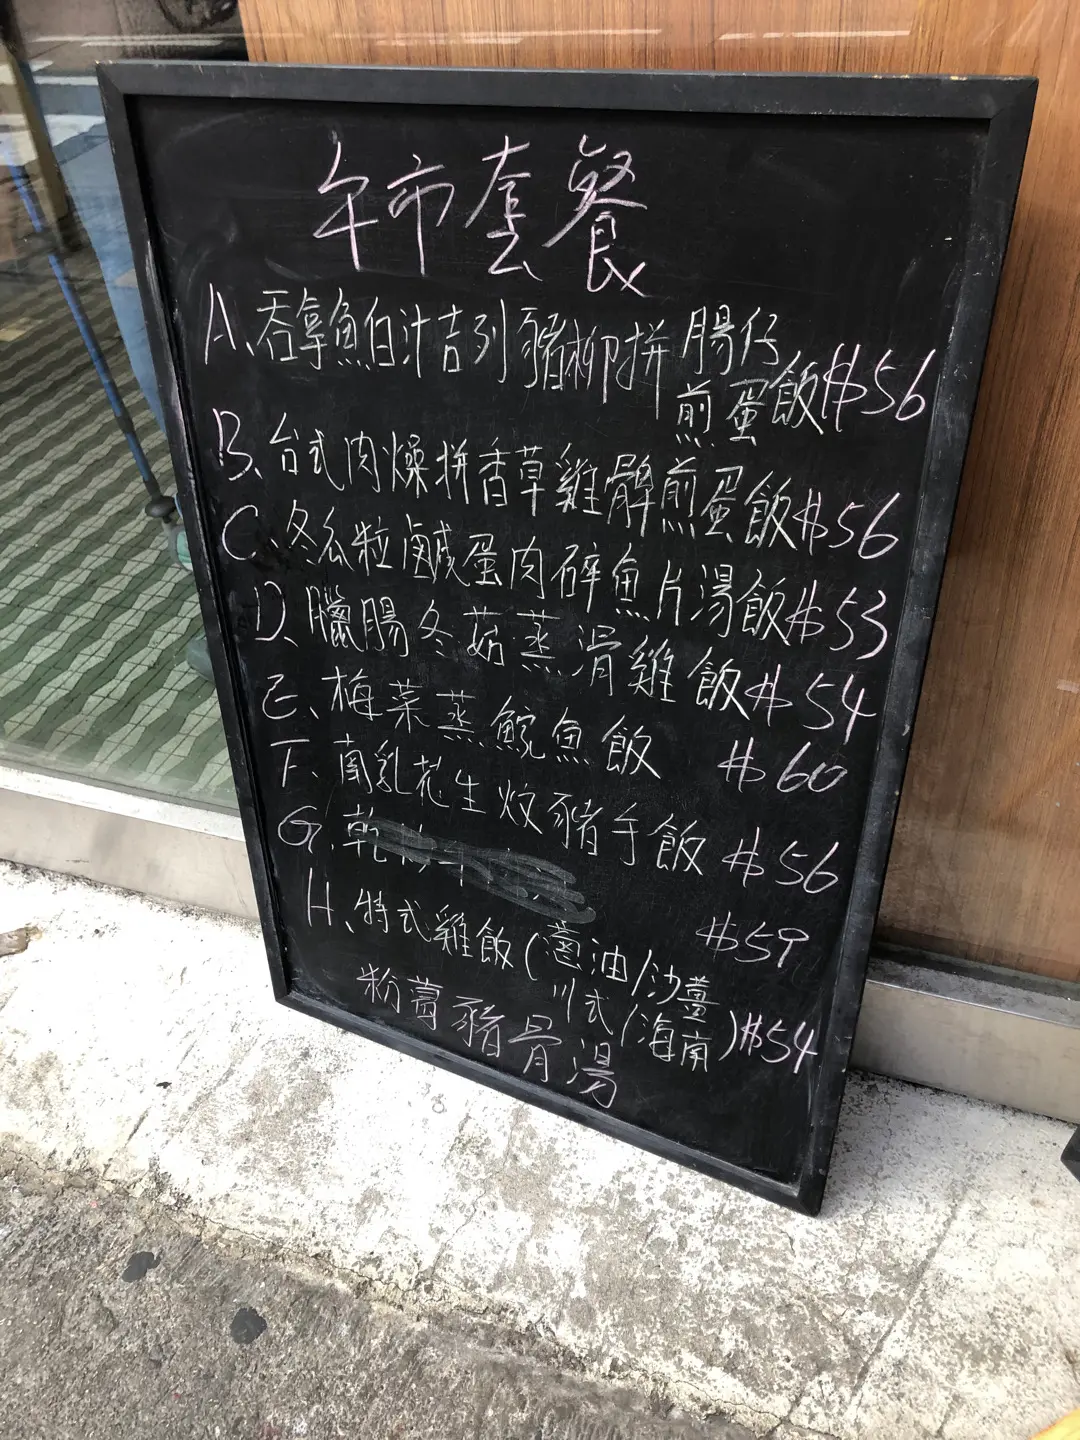 午市套餐
A、吞拿魚白汁吉列豬柳拼腸仔
煎蛋飯$56
B、台式肉燥拼香草雞髀煎蛋飯$56
C、冬瓜粒鹹蛋肉碎魚片湯飯$53
D、臘腸冬菇蒸滑雞飯$54
E、梅菜蒸鯇魚飯 $60
F、南乳花生炆豬手飯 $56
G.乾 $59
H、特式雞飯(蔥油/沙薑
川式/海南)$54
粉葛豬骨湯